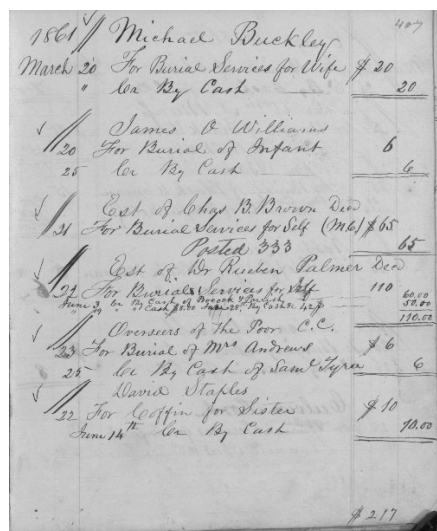 407
1861 // Michael Buckley
March 20 For Burial Services for Wife $ 20
" Cr By Cash 20
// James O Williams
20 For Burial of Infant 6
25 Cr By Cash 6
// Est of Chas B. Brown Decd
21 For Burial Services for Self (M.C.) $ 65
Posted 333 65
// Est of Dr Reuben Palmer Decd
22 For Burial Services for Self 110
June 3 Cr By Cash of 60.00
Cash $ 50.00 By Cash 50.00
110.00
// Overseers of the Poor C.C.
23 For Burial of Mrs Andrews $ 6
25 Cr By Cash of Saml Tyree 6
// David Staples
22 For Coffin for Sister $ 10
June 14th Cr By Cash 10.00
$ 217